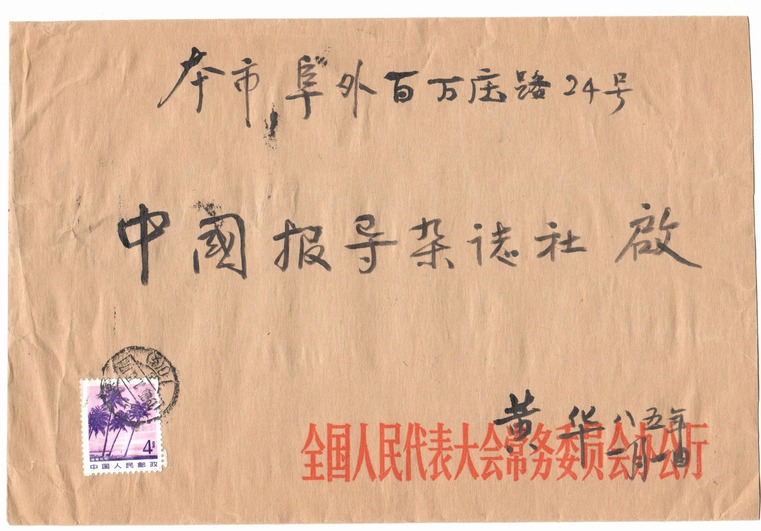 本市阜外百万庄路24号
中國报导杂誌社 啟
黄华 八五年
一月一日
全国人民代表大会常务委员会办公厅
4分
中国人民邮政